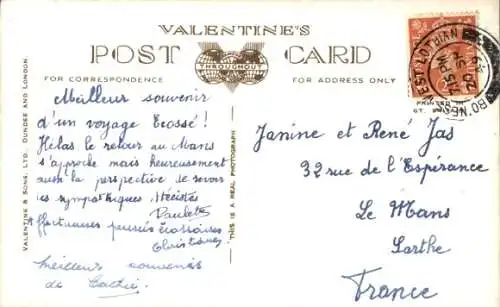 VALENTINE'S
POST CARD
THROUGHOUT
FOR CORRESPONDENCE
FOR ADDRESS ONLY
VALENTINE & SONS, LTD. DUNDEE AND LONDON.
THIS IS A REAL PHOTOGRAPH
PRINTED IN
BO'NESS WEST LOTHIAN
7.15 PM
20
Meilleur souvenir
d'un voyage Ecossé!
Hélas le retour au Mans
s'approche mais heureusement
aussi la perspective de revoir
les sympathiques
Paulette
Affectueuses pensées écossaises
Christiane
Meilleurs souvenirs
de
Janine et René Jas
32 rue de l'Espérance
Le Mans
Sarthe
France